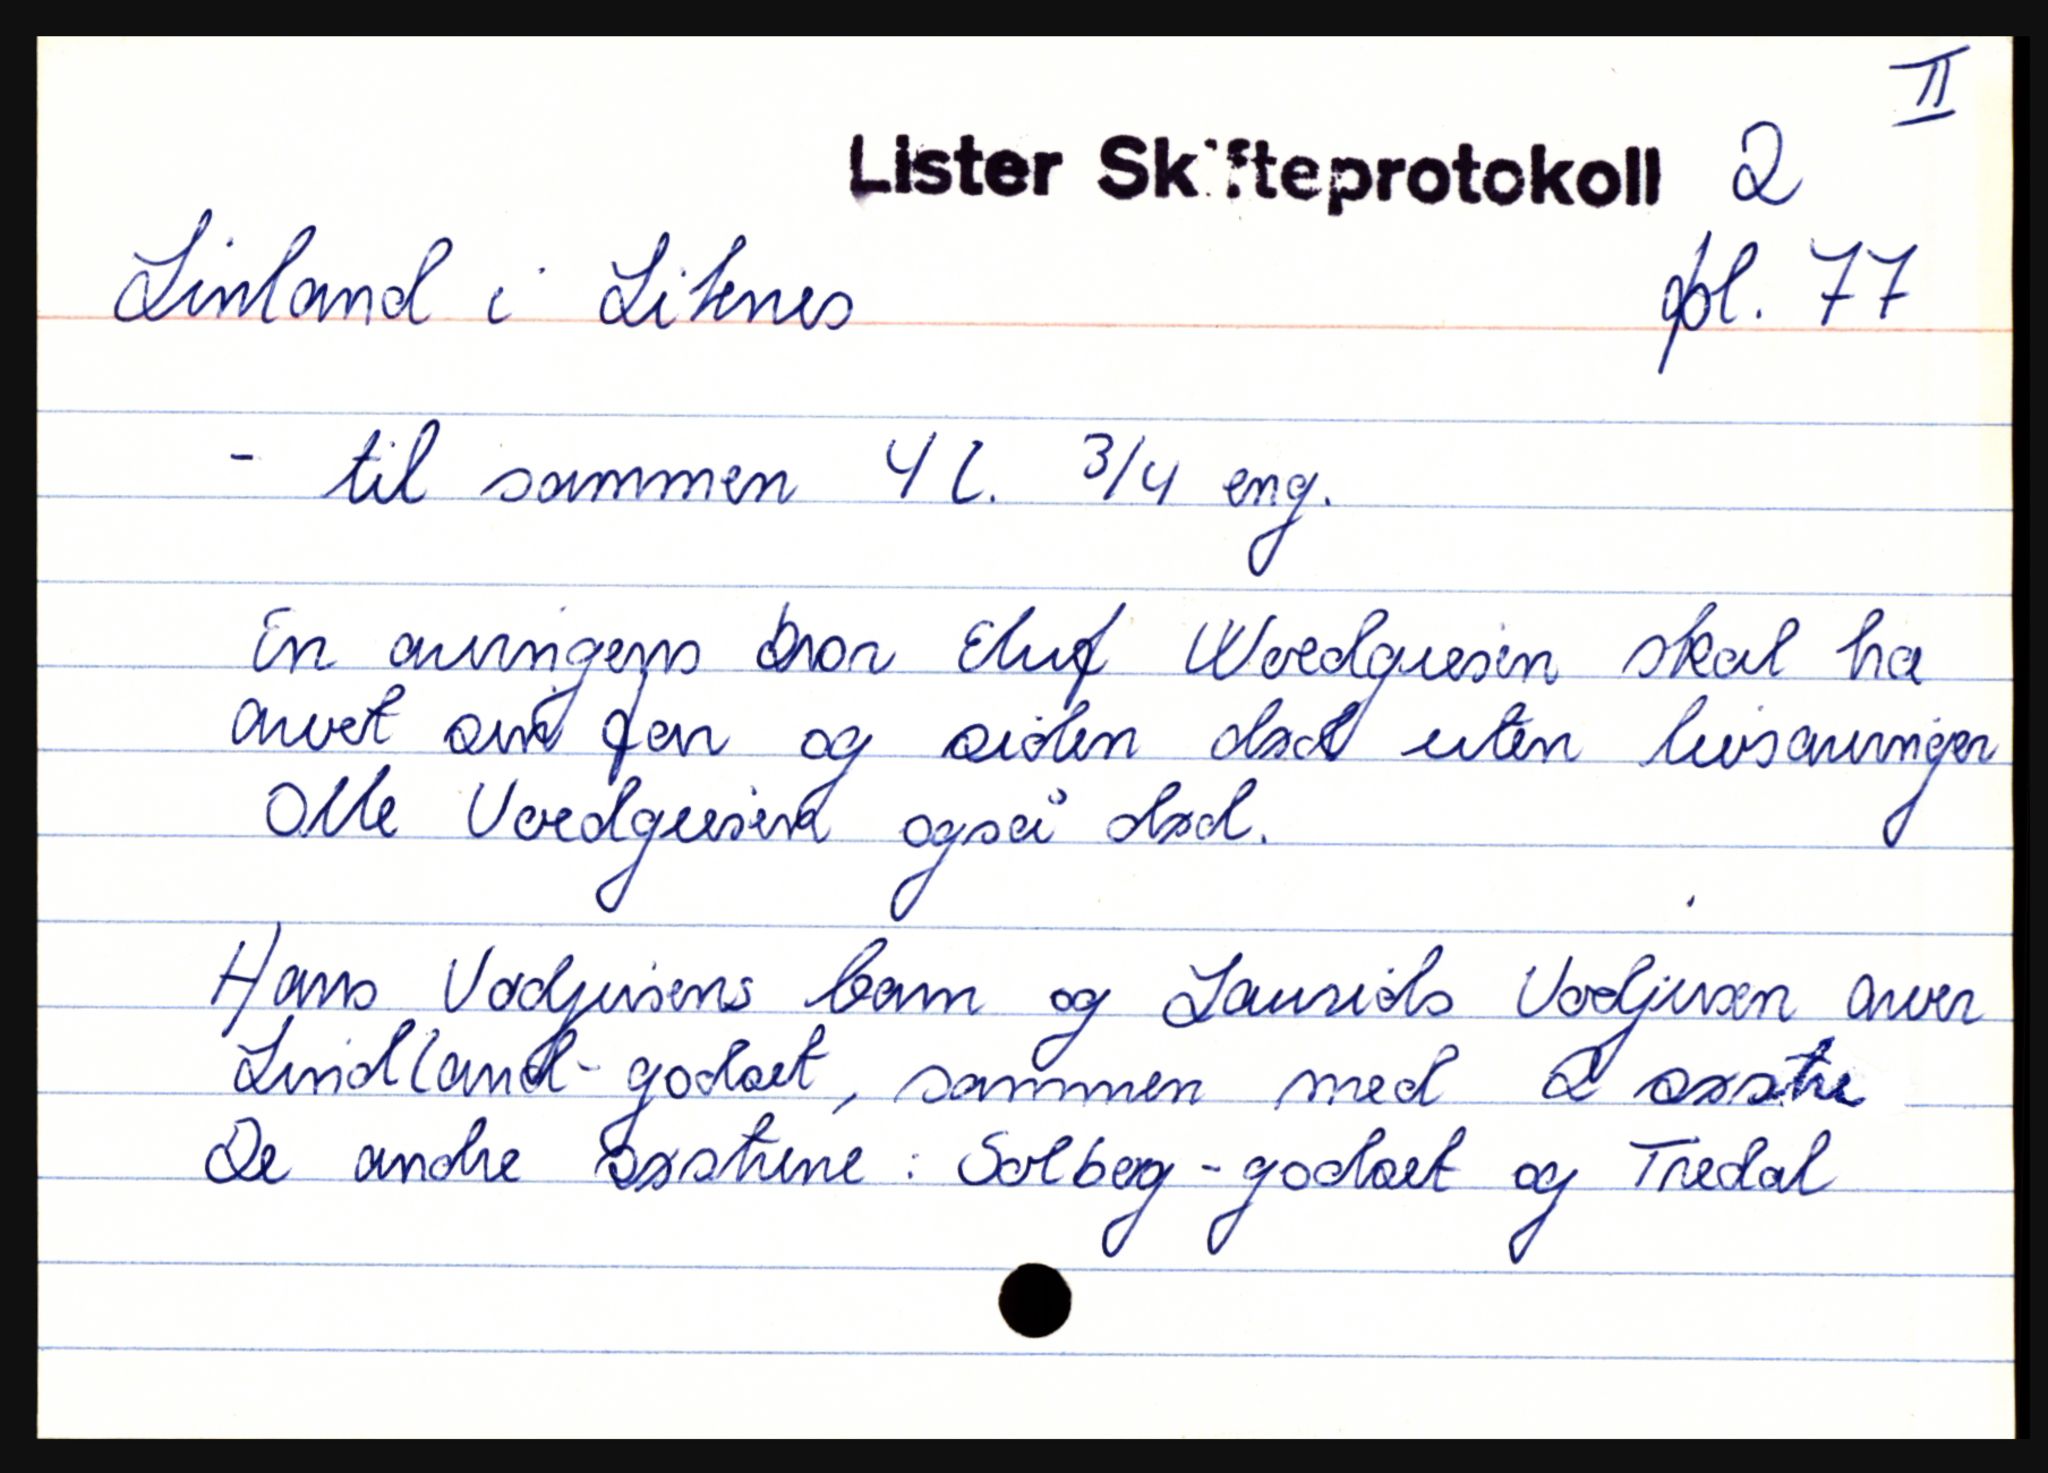 II
Lister Skifteprotokoll 2
Linland i Liknes fol. 77
- til sammen 4 l. 3/4 eng.
En arvingens bror Eluf Woedguesen skal ha
arvet sin far og siden død uten livsarvinger
Olle Voedguesen også død.
Hans Vodjusens barn og Laurids Vodjusen arver
Lindland-godset, sammen med 2 søstre
De andre søstrene : Solberg-godset og Tredal